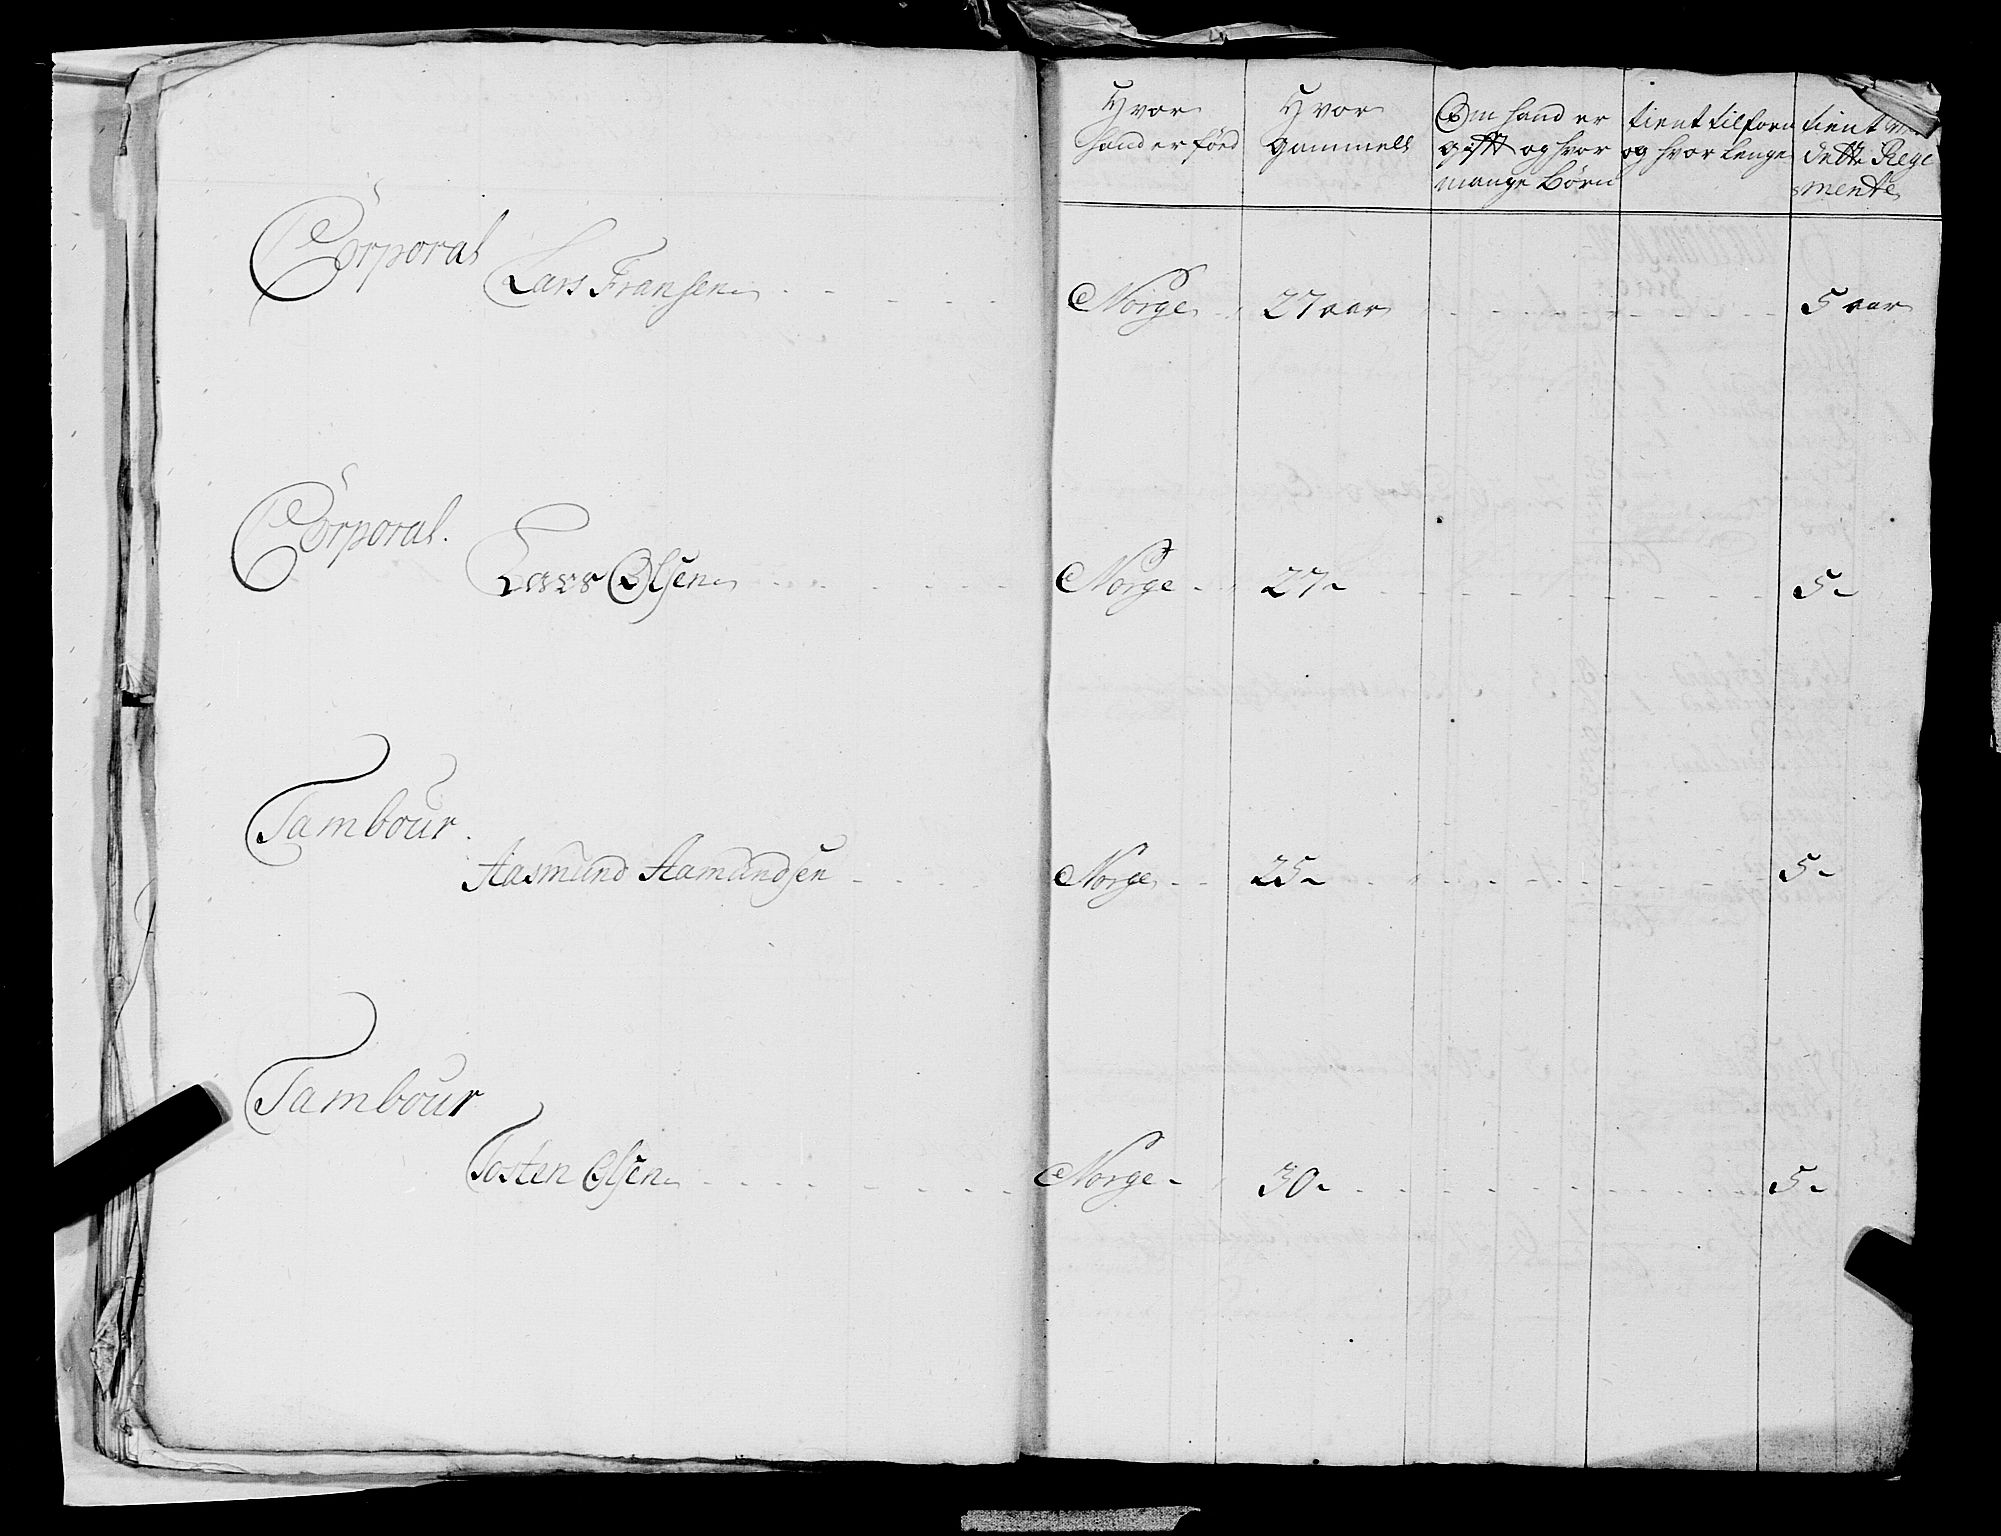 Hvor
hand er föed
Hvor
gammell
Om hand er
gift og hvor
mange Börn
tient tilforn
og hvor lenge
tient
dette Rege
mente
Corporal Lars Fransen Norge 27 aar 5 aar
Corporal.
Lars Olsen Norge 27 5
Tambour.
Aasmund Aamundsen Norge 25 5
Tambour
Tosten Olsen Norge 30 5